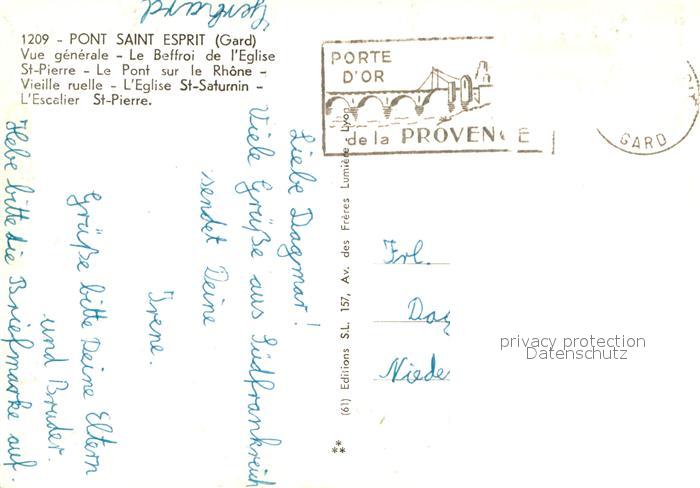 1209 - PONT SAINT ESPRIT (Gard)
Vue générale - Le Beffroi de l'Eglise
St-Pierre - Le Pont sur le Rhône -
Vieille ruelle - L'Eglise St-Saturnin -
L'Escalier St-Pierre.
Liebe Dagmar!
Viele Grüße aus Südfrankreich
sendet Deine
Irene.
Grüße bitte Deine Eltern
und Bruder.
Hebe bitte die Briefmarke auf.
Gerhard
(61) Editions S.L. 157, Av. des Frères Lumière - Lyon
PORTE
D'OR
de la PROVENCE
GARD
Frl.
Dag
Niede
privacy protection
Datenschutz